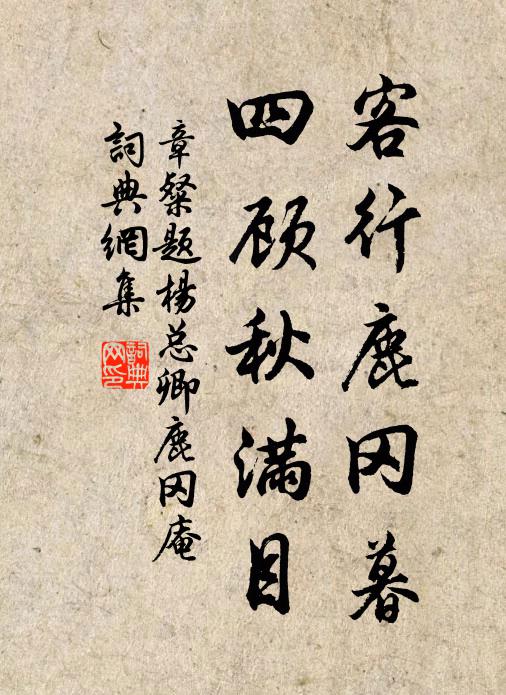 客行鹿冈暮
四顾秋满目
章粲题杨总卿鹿冈庵
词典网集
词典网印